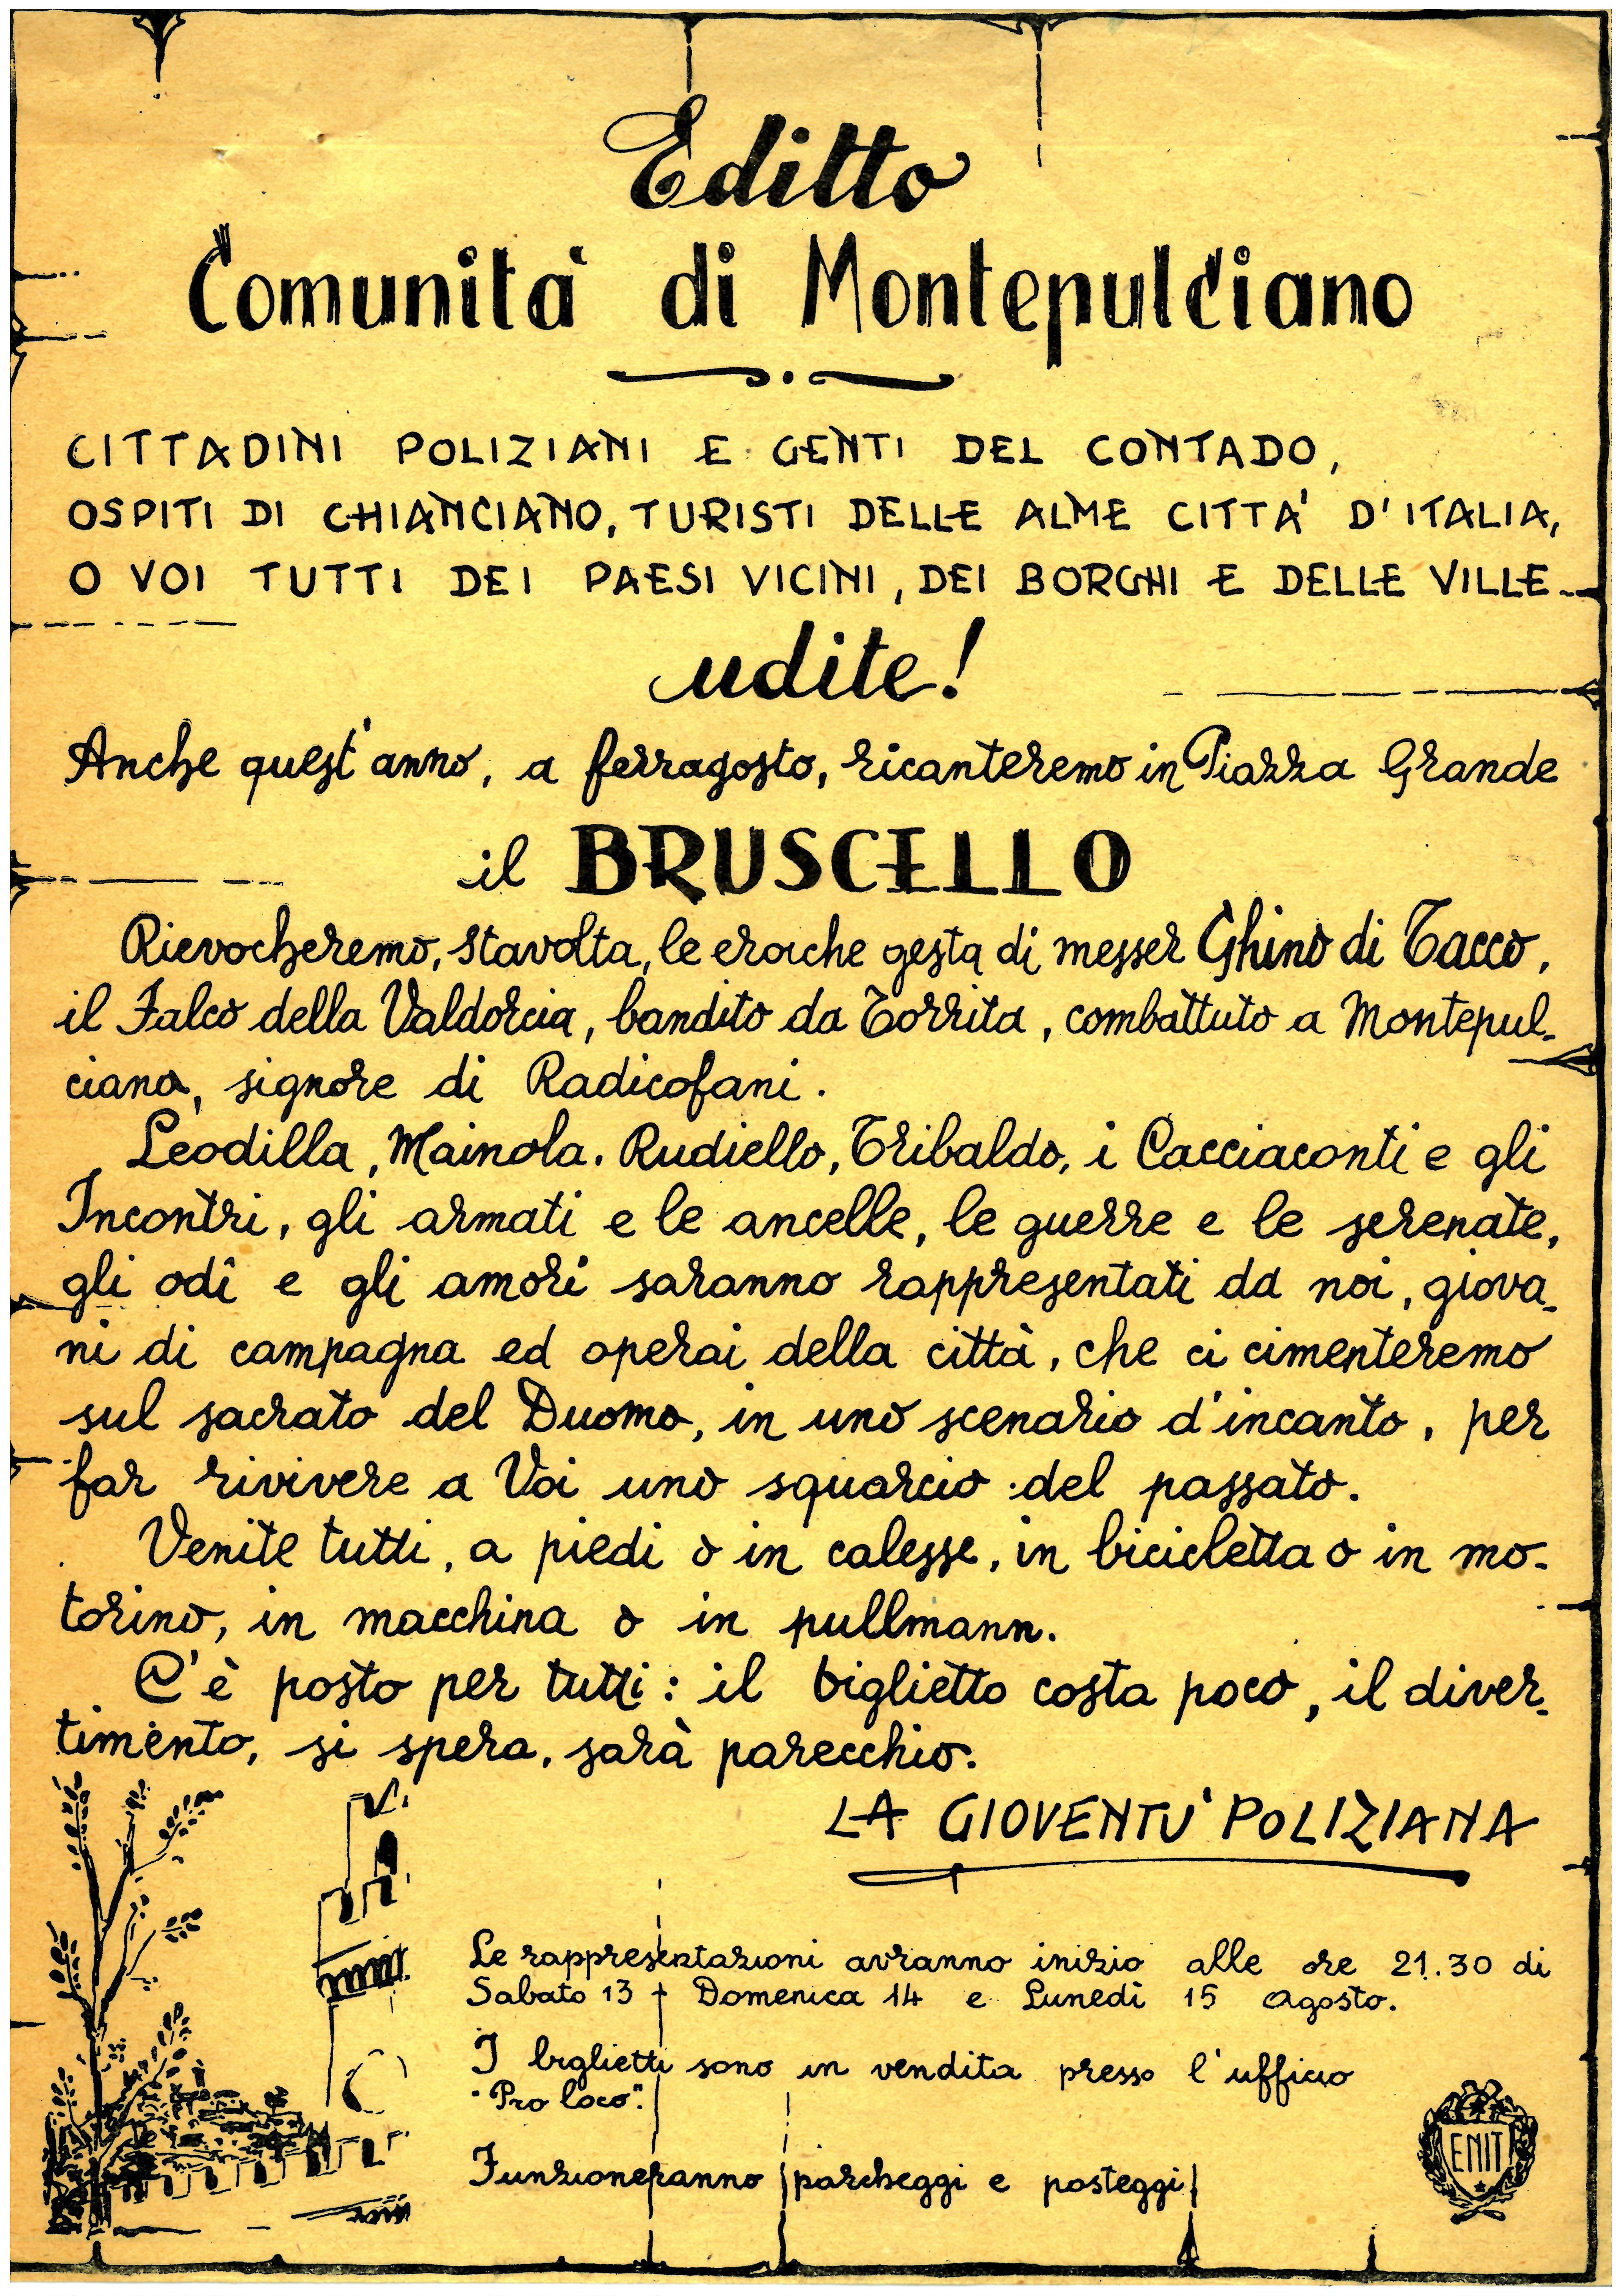 Editto
Comunità di Montepulciano
CITTADINI POLIZIANI E GENTI DEL CONTADO,
OSPITI DI CHIANCIANO, TURISTI DELLE ALME CITTA' D'ITALIA,
O VOI TUTTI DEI PAESI VICINI, DEI BORGHI E DELLE VILLE-
udite!
Anche quest'anno, a ferragosto, ricanteremo in Piazza Grande
il BRUSCELLO
Rievocheremo, stavolta, le eroiche gesta di messer Ghino di Tacco,
il Falco della Valdorcia, bandito da Torrita, combattuto a Montepul-
ciano, signore di Radicofani.
Leodilla, Mainola. Rudiello, Tribaldo, i Cacciaconti e gli
Incontri, gli armati e le ancelle, le guerre e le serenate,
gli odî e gli amori saranno rappresentati da noi, giova-
ni di campagna ed operai della città, che ci cimenteremo
sul sacrato del Duomo, in uno scenario d'incanto, per
far rivivere a Voi uno squarcio del passato.
Venite tutti, a piedi o in calesse, in bicicletta o in mo-
torino, in macchina o in pullmann.
C'è posto per tutti: il biglietto costa poco, il diver-
timento, si spera, sarà parecchio.
LA GIOVENTU' POLIZIANA
Le rappresentazioni avranno inizio alle ore 21.30 di
Sabato 13 - Domenica 14 e Lunedì 15 Agosto.
I biglietti sono in vendita presso l'ufficio
"Pro loco".
Funzioneranno parcheggi e posteggi
ENIT